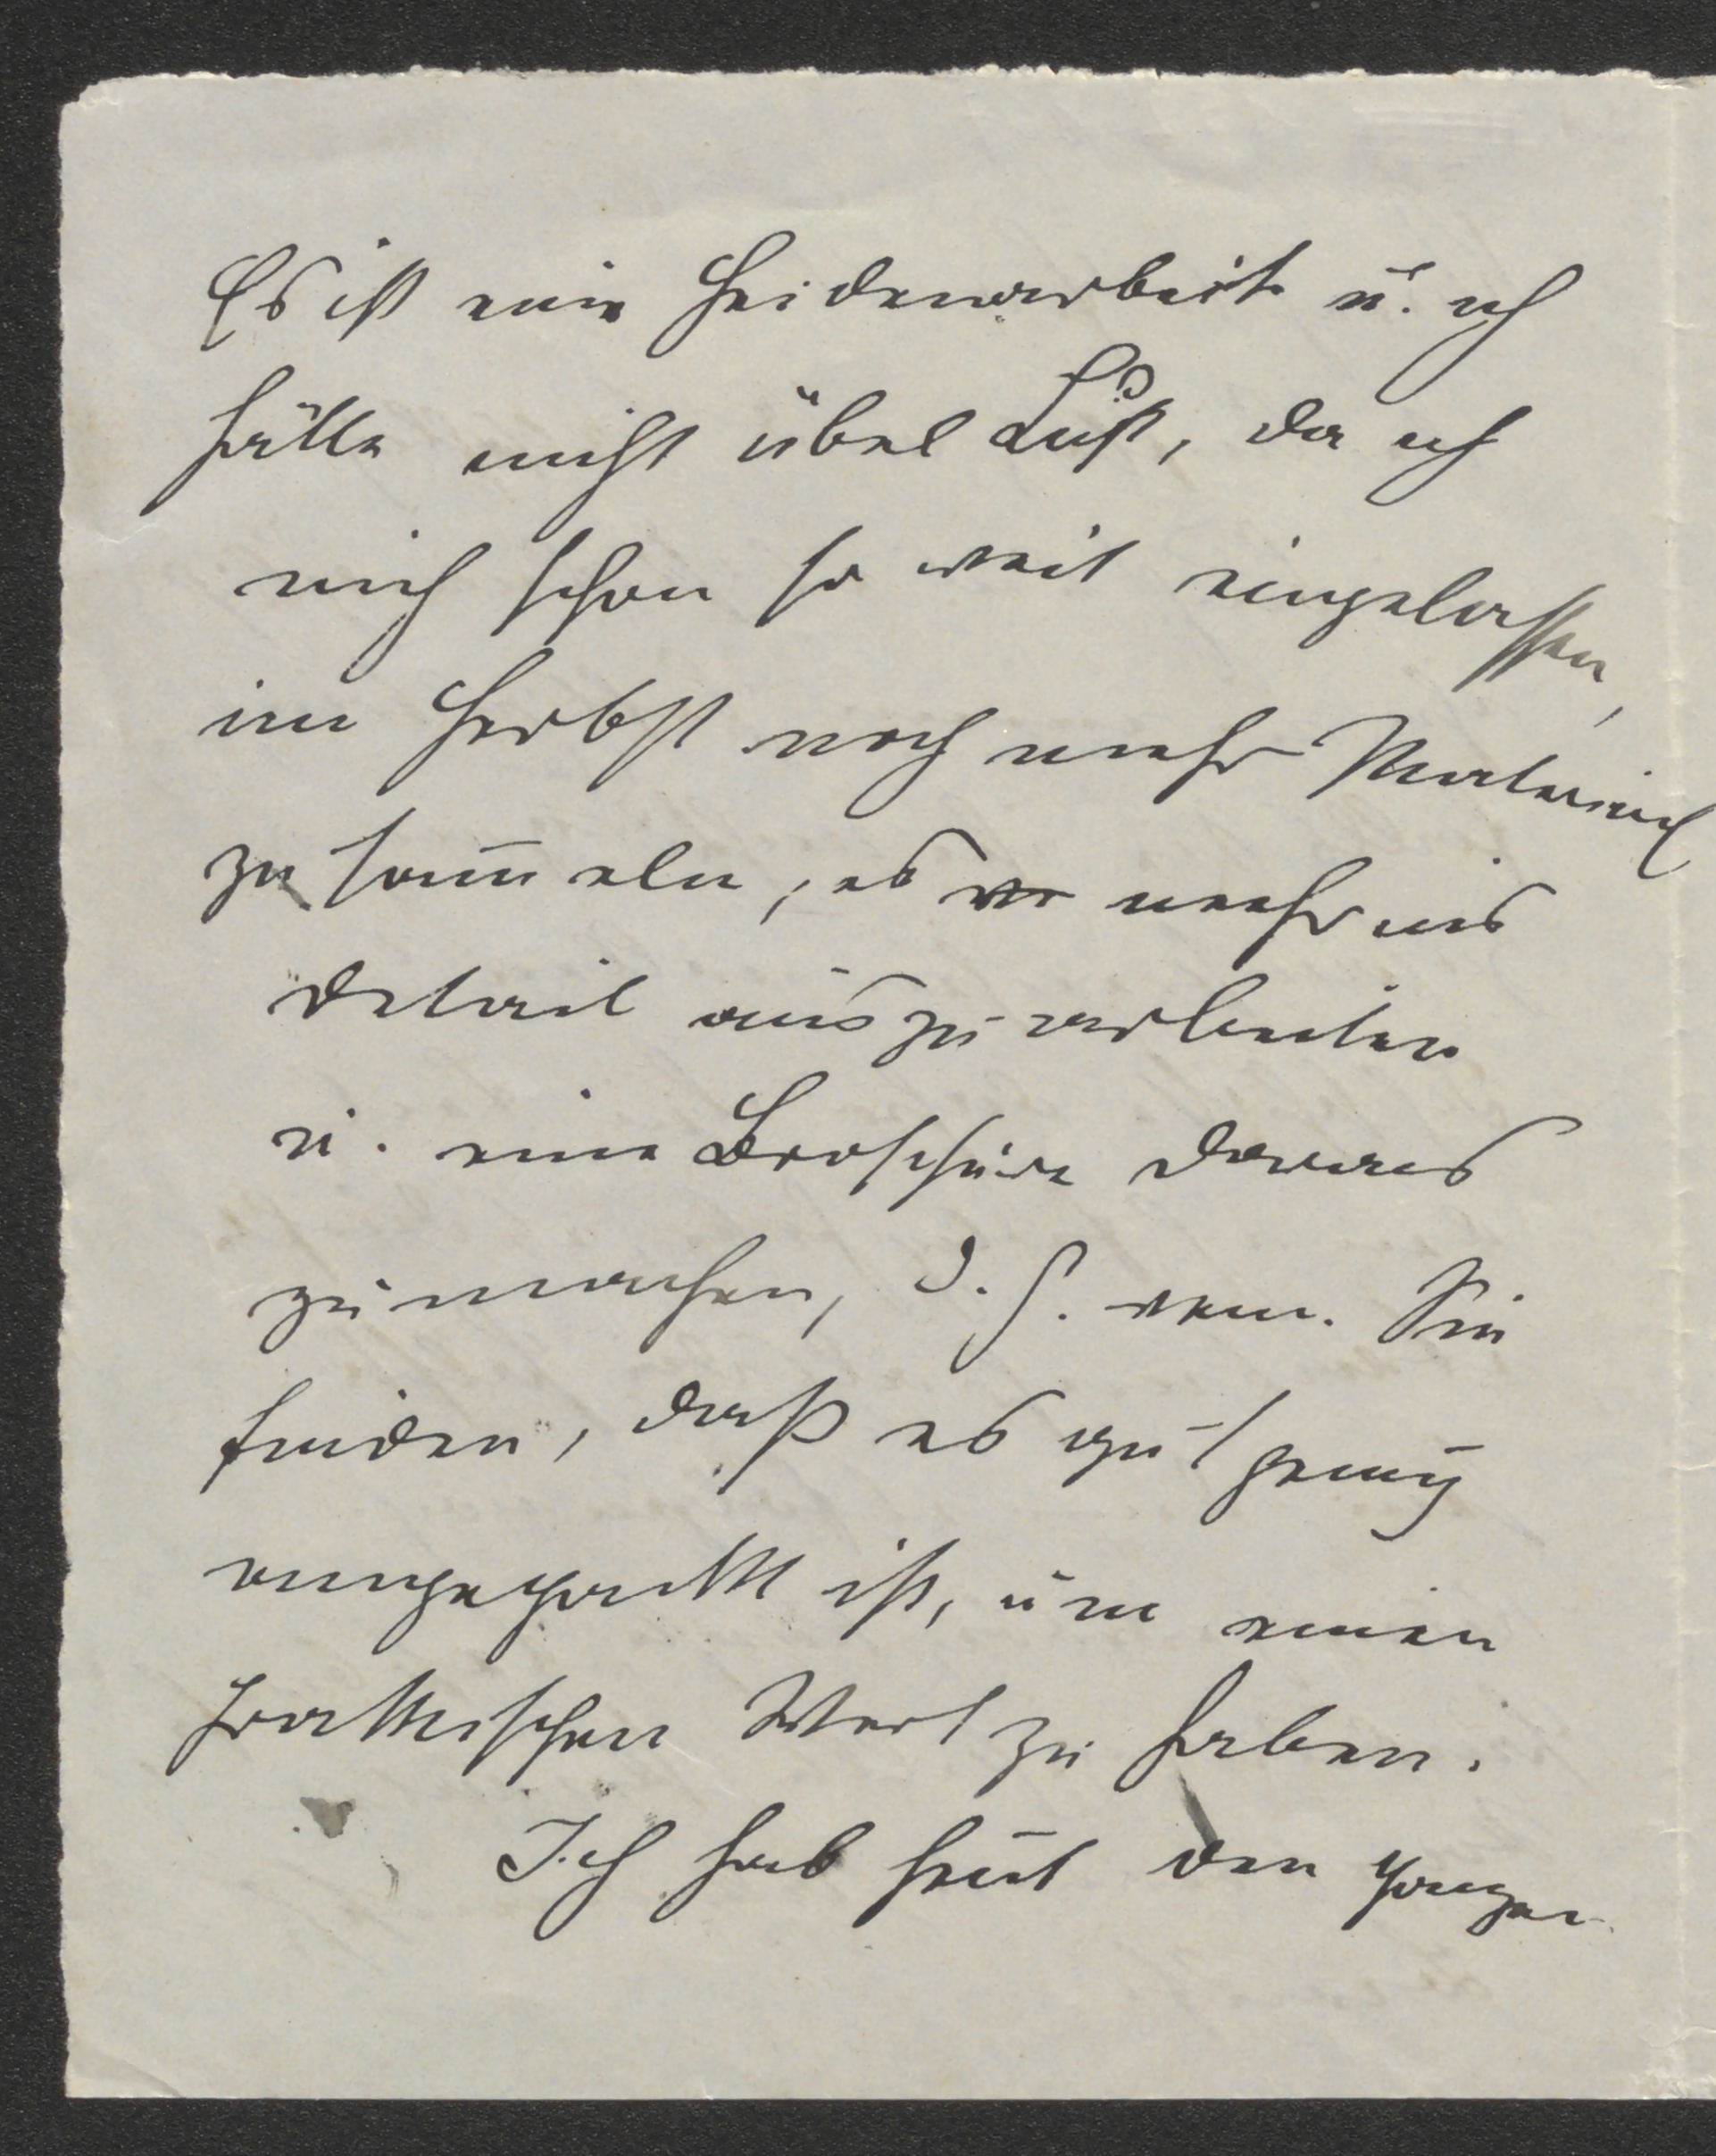 Es ist eine Heidenarbeit u. ich
hätte nicht übel Lust, da ich
mich schon so weit eingelassen,
im Herbst noch mehr Material
zu sammeln, es mehr ins
Detail auszuarbeiten
u. eine Broschüre daraus
zu machen, d. h. wenn Sie
finden, daß es gut genug
angepackt ist, um einen
praktischen Wert zu haben.
Ich hab heut den ganzen